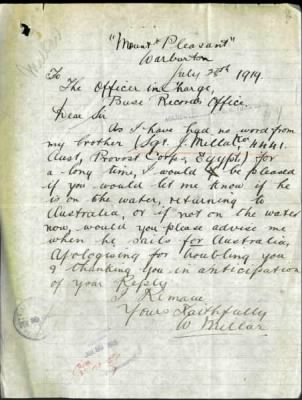 "Mount Pleasant"
Warburton
July 28th 1919.
To
The Officer in Charge,
Base Records Office.
Dear Sir
As I have had no word from
my brother (Sgt. J. Millar No 4441.
Aust, Provost Corps, Egypt) for
a long time, I would be pleased
if you would let me know if he
is on the water, returning to
Australia, or if not on the water
now, would you please advise me
when he sails for Australia,
Apologising for troubling you
& thanking you in anticipation
of your Reply
I Remain
Yours Faithfully
W. Millar